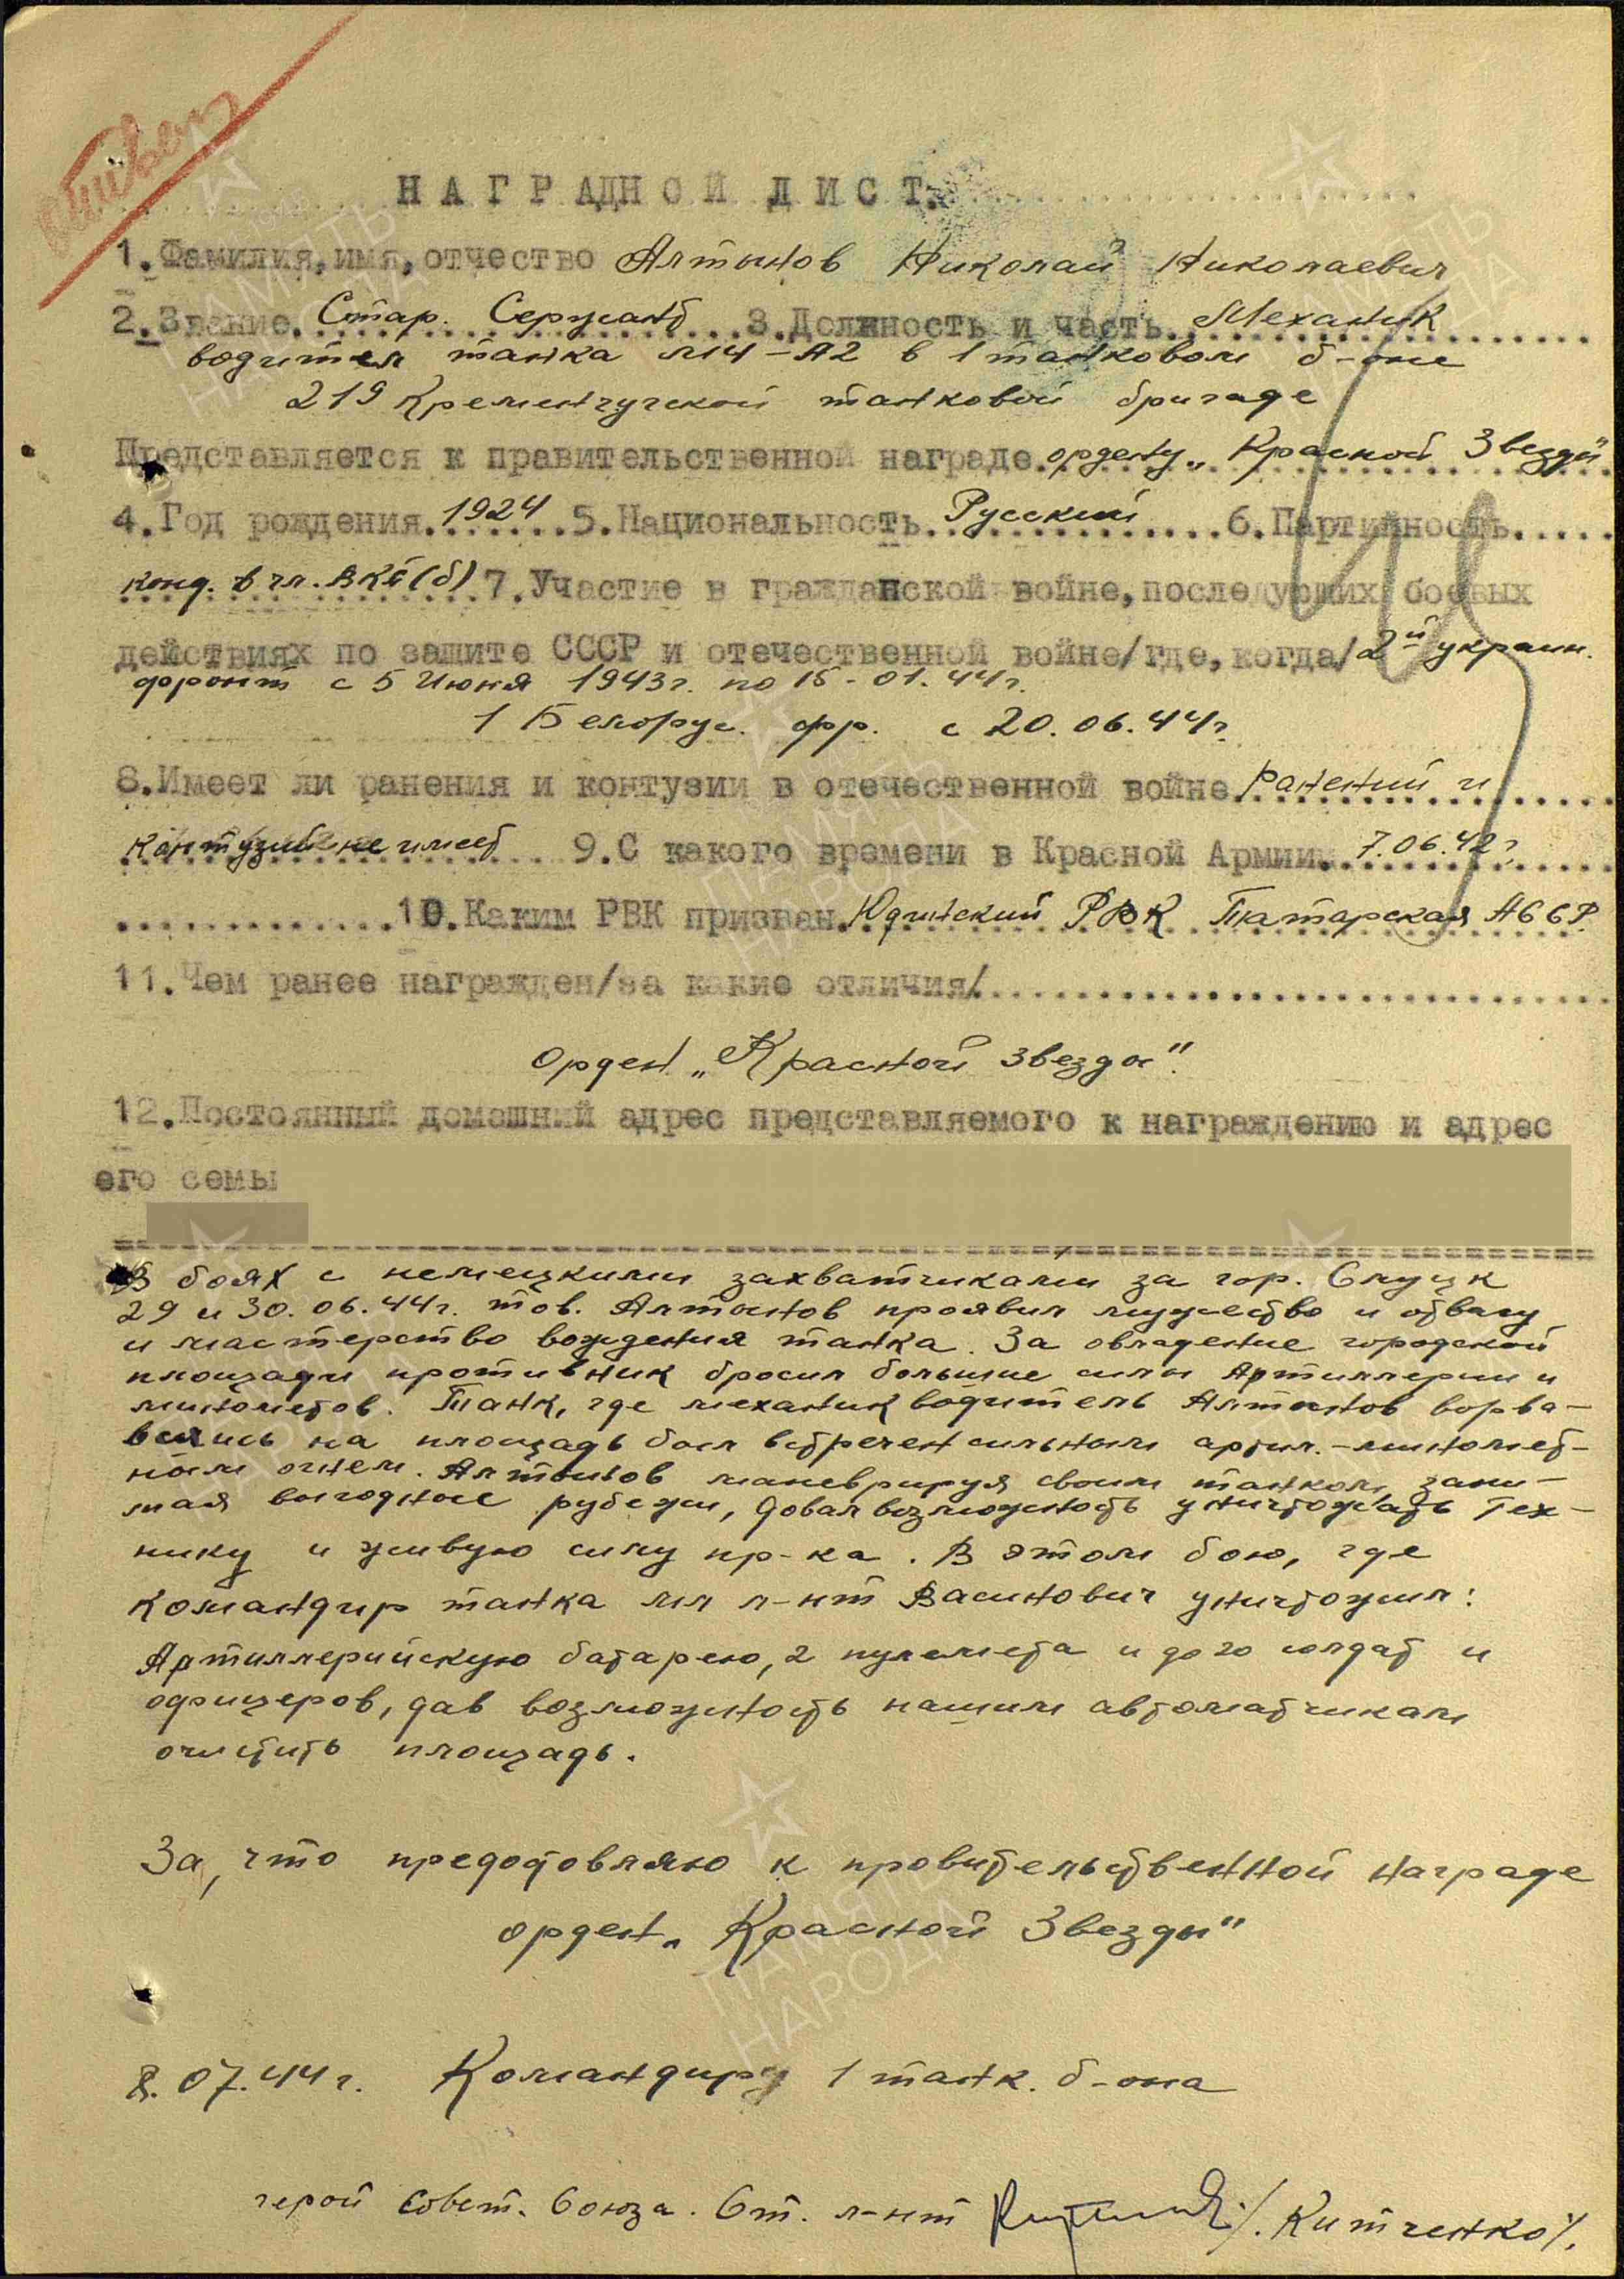 НАГРАДНОЙ ЛИСТ.
1. Фамилия, имя, отчество Алтынов Николай Николаевич
2. Звание. Стар. Сержант 3. Должность и часть. Механик
водител танка М4-А2 в 1 танковом б-оне
219 Кременчугской танковой бригаде
Представляется к правительственной награде. ордену „Красной Звезды"
4. Год рождения. 1924 5. Национальность. Русский 6. Партийность.....
конд. в чл. ВКП(б) 7. Участие в гражданской войне, последующих боевых
действиях по защите СССР и отечественной войне/где, когда/ 2й украин.
фронт с 5 Июня 1943г. по 15-01.44г.
1 Белорус. фр. с 20.06.44г.
8. Имеет ли ранения и контузии в отечественной войне. Ранений и
контузий не имеет 9. С какого времени в Красной Армии. 7.06.42г.
10. Каким РВК призван. Юдинский РВК Татарская АССР.
11. Чем ранее награжден/за какие отличия/.
Орден „Красной звезды".
12. Постоянный домашний адрес представляемого к награждению и адрес
его семьи
В боях с немецкими захватчиками за гор. Слуцк
29 и 30.06.44г. тов. Алтынов проявил мужество и отвагу
и мастерство вождения танка. За овладение городской
площади противник бросил большие силы Артиллерии и
минометов. Танк, где механик водитель Алтынов ворва-
вшись на площадь был встречен сильным артил.-миномет-
ным огнем. Алтынов маневрируя своим танком, зани-
мая выгодные рубежи, довал возможность уничтожать тех-
нику и живую силу пр-ка. В этом бою, где
командир танка мл л-нт Васинович уничтожил:
Артиллерийскую батарею, 2 пулемета и до 20 солдат и
офицеров, дав возможность нашим автоматчикам
очистить площадь.
За, что предоставляю к правительственной награде
орден „Красной Звезды"
8.07.44г. Командиру 1 танк. б-она
герой Совет. Союза. Ст. л-нт /. Китченко /.
ПАМЯТЬ
НАРОДА